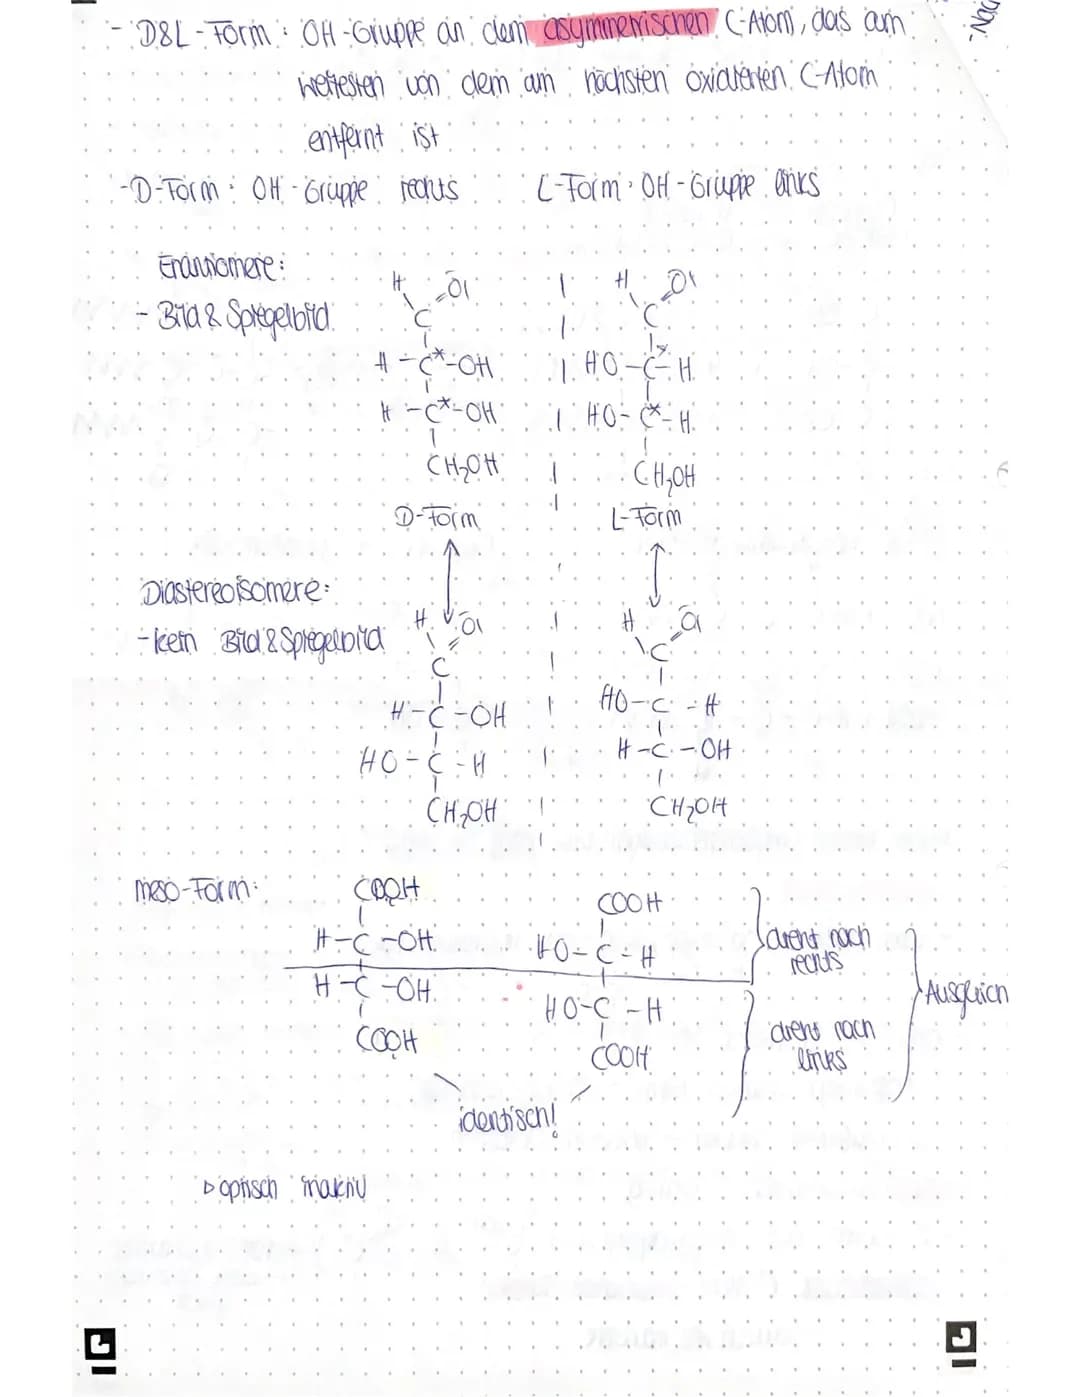 - D&L-Form: OH-Gruppe an dem asymmetrischen C-Atom, das am
weitesten von dem am höchsten oxidierten C-Atom
entfernt ist
- D-Form: OH-Gruppe rechts L-Form: OH-Gruppe links
Enantiomere:
- Bild & Spiegelbild
H O| H O|
C C
H-C*-OH HO-C*-H
H-C*-OH HO-C*-H
CH₂OH CH₂OH
D-Form L-Form
Diastereoisomere:
- kein Bild & Spiegelbild
H O| H O|
C C
H-C-OH HO-C-H
HO-C-H H-C-OH
CH₂OH CH₂OH
meso-Form:
COOH COOH
H-C-OH HO-C-H dreht nach rechts
H-C-OH HO-C-H dreht nach links
COOH COOH
Ausgleich
identisch!
▷ optisch inaktiv